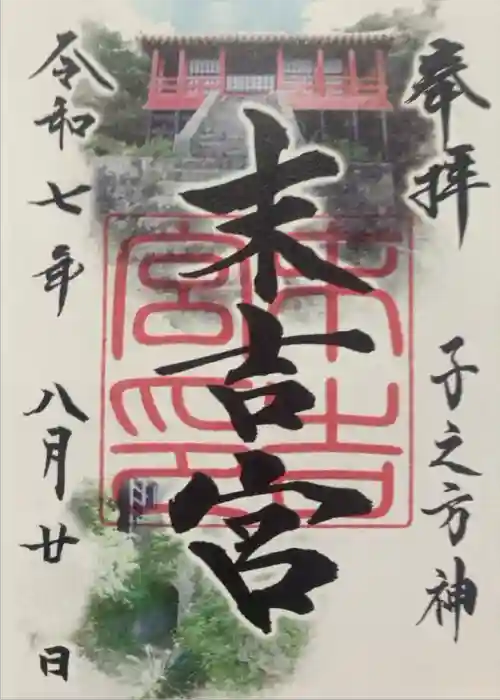 奉拝
子之方神
末吉宮
末吉
宮印
令和七年 八月廿 日